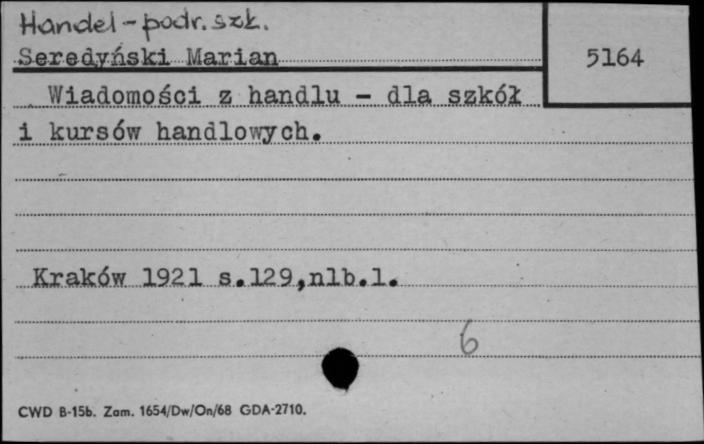 Handel - podr. szk.
Seredyński Marian
5164
Wiadomości z handlu - dla szkół
i kursów handlowych.
Kraków 1921 s.129,nlb.1.
6
CWD B-15b. Zam. 1654/Dw/On/68 GDA-2710.